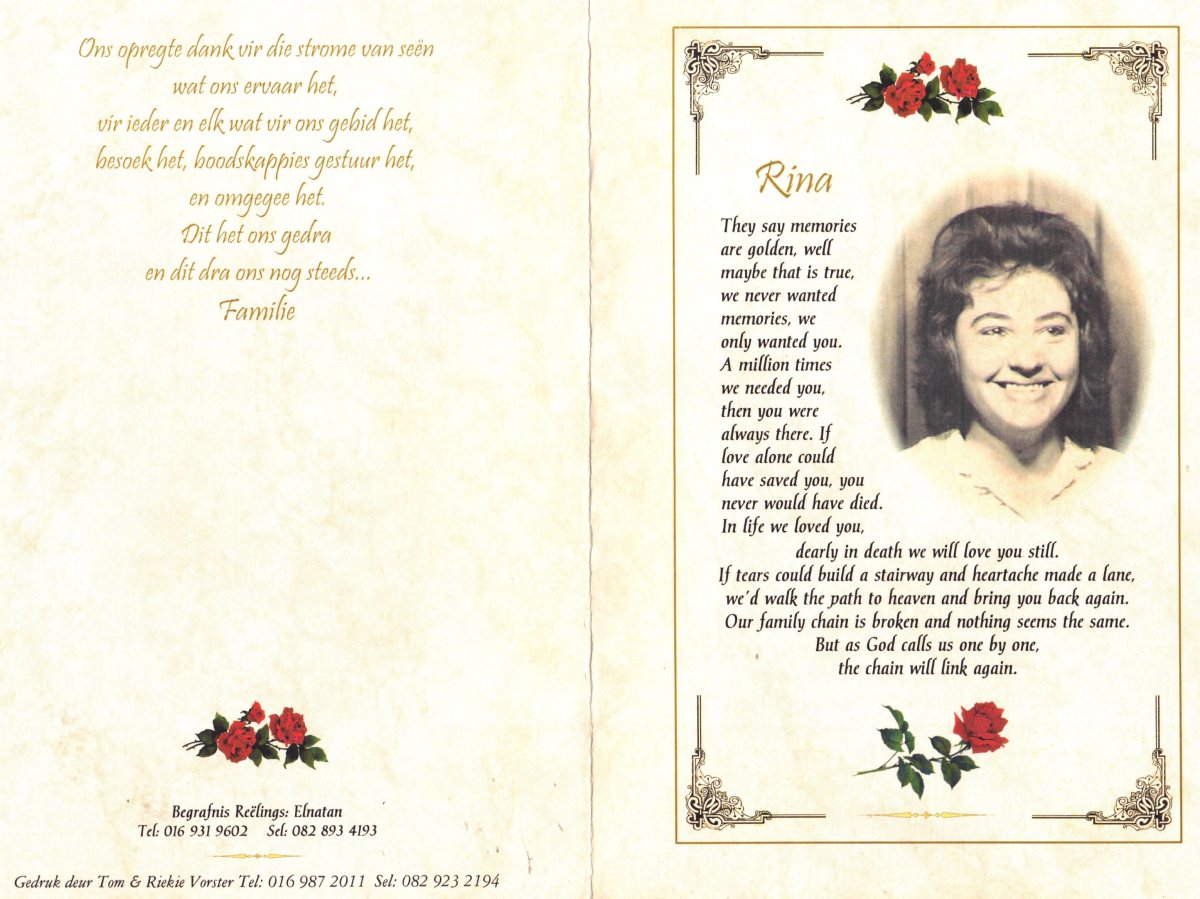 Ons opregte dank vir die strome van seën
wat ons ervaar het,
vir ieder en elk wat vir ons gebid het,
besoek het, boodskappies gestuur het,
en omgegee het.
Dit het ons gedra
en dit dra ons nog steeds...
Familie
Begrafnis Reëlings: Elnatan
Tel: 016 931 9602 Sel: 082 893 4193
Gedruk deur Tom & Riekie Vorster Tel: 016 987 2011 Sel: 082 923 2194
Rina
They say memories
are golden, well
maybe that is true,
we never wanted
memories, we
only wanted you.
A million times
we needed you,
then you were
always there. If
love alone could
have saved you, you
never would have died.
In life we loved you,
dearly in death we will love you still.
If tears could build a stairway and heartache made a lane,
we'd walk the path to heaven and bring you back again.
Our family chain is broken and nothing seems the same.
But as God calls us one by one,
the chain will link again.